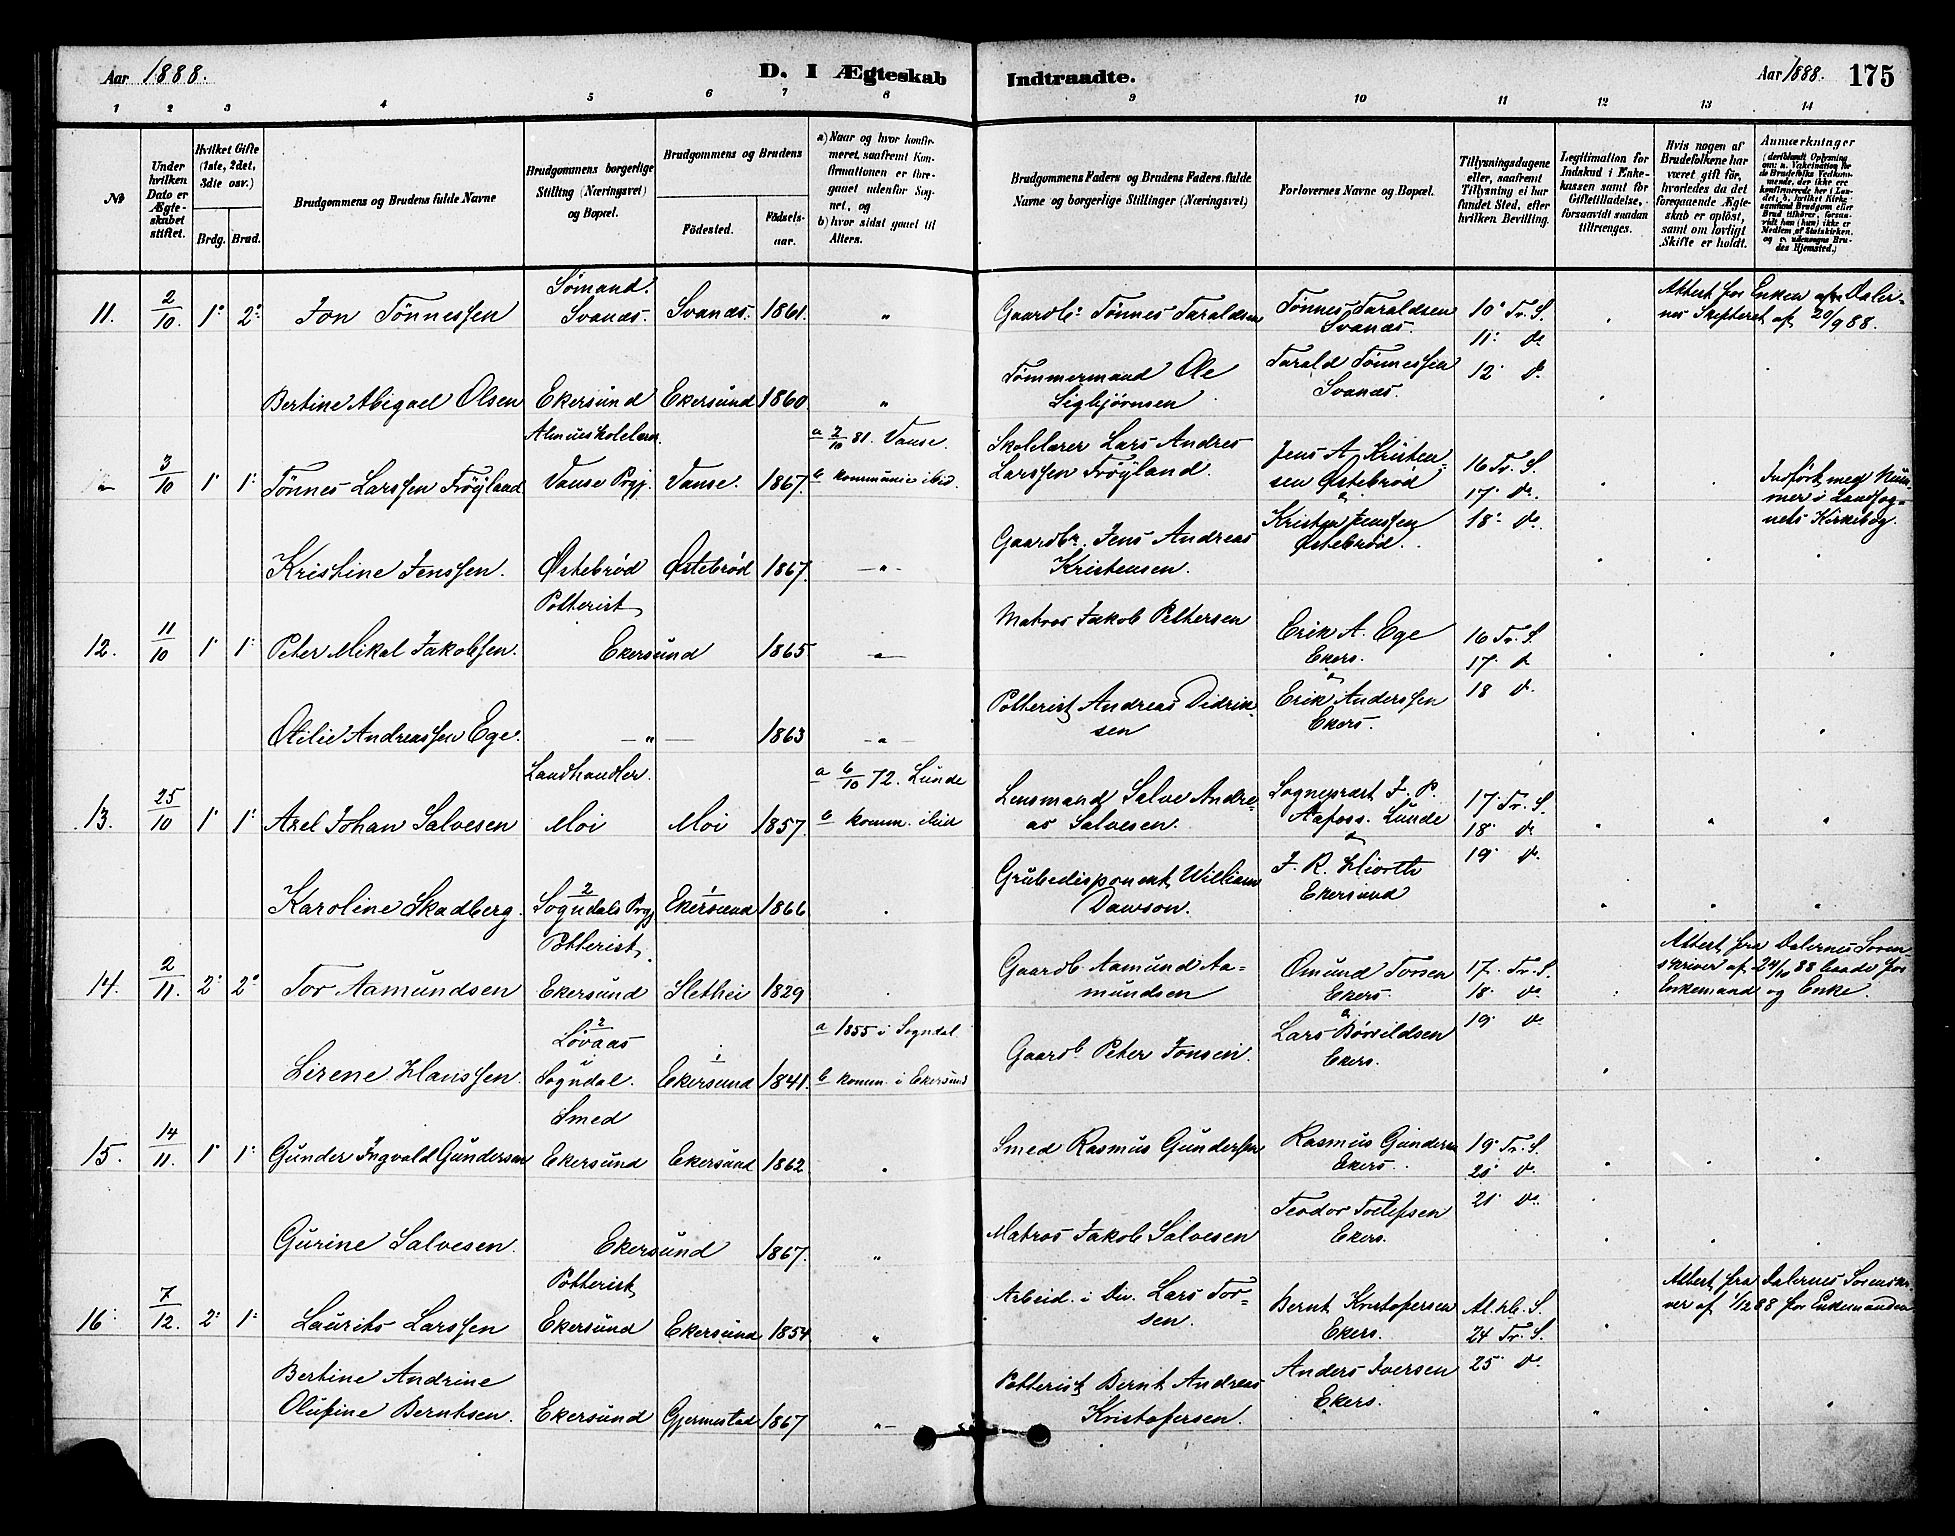 Aar 1888.
D. I Ægteskab
Indtraadte.
Aar 1888. 175
1 2 3 4 5 6 7 8 9 10 11 12 13 14
No
Under hvilken Dato er Ægteskabet stiftet.
Hvilket Gifte (1ste, 2det, 3die osv.)
Brdg. Brud.
Brudgommens og Brudens fulde Navne
Brudgommens borgerlige Stilling (Næringsvei) og Bopæl.
Brudgommens og Brudens
Fødested.
Fødselsaar.
a) Naar og hvor konfirmeret, saafremt Konfirmationen er foregaaet udenfor Sognet, og
b) hvor sidst gaaet til Alters.
Brudgommens Faders og Brudens Faders fulde Navne og borgerlige Stillinger (Næringsvei)
Forlovernes Navne og Bopæl.
Tillysningsdagene eller, saafremt Tillysning ei har fundet Sted, efter hvilken Bevilling.
Legitimation for Indskud i Enkekassen samt for Giftetilladelse, forsaavidt saadan tiltrænges.
Hvis nogen af Brudefolkene har været gift før, hvorledes da det foregaaende Ægteskab er opløst, samt om lovligt Skifte er holdt.
Anmærkninger
11. 2/10. 1° 2° Jon Tønnessen Sømand. Svanæs. Svanæs. 1861. " Gaardbr. Tønnes Taraldsen Tønnes Taraldsen Svanæs. 10° Tr. S. 11° do
Attest for Enken fra Dalernes Skifteret af 20/9 88.
Bertine Abigael Olsen Ekersund Ekersund 1860 " Tømmermand Ole Sigbjørnsen Tarald Tønnessen Svanæs. 12 do
3/10 1° 1° Tønnes Larssen Frøyland Almueskolelærer. Vanse Prgj. Vanse. 1867. a 2/10 81. Vanse. b kommunic. ibid. Skolelærer Lars Andres Larssen Frøyland. Jens A. Kristensen Østebrød 16 Tr. S. 17 do
Indført med Nummer i Landsognets Kirkebog.
Kristine Jenssen. Østebrød Østebrød 1867. " Gaardbr. Jens Andreas Kristensen. Kristen Jenssen Østebrød. 18 do
12. 11/10 1° 1° Peter Mikal Jakobsen. Potterist Ekersund 1865 " Matros Jakob Pettersen Erik A. Ege Ekers. 16 Tr. S. 17 do
Otilie Andreassen Ege. " 1863 " Potterist Andreas Didriksen Erik Anderssen Ekers. 18 do
13. 25/10 1° 1° Axel Johan Salvesen Landhandler. Moi Moi 1857. a 6/10 72. Lunde b komm. ibid Lensmand Salve Andreas Salvesen. Sogneprest J. P. Aafoss. Lunde 17 Tr. S. 18 do
Karoline Skadberg. Sogndals Prgj Ekersund 1866 Grubedisponent William Dawson. J. R. Hiorth Ekersund 19 do
14. 2/11. 2° 2° Tor Aamundsen Potterist. Ekersund Slethei 1829 Gaardb. Aamund Aamundsen Omund Torsen Ekers. 17 Tr. S. 18 do
Attest fra Dalernes Sorenskriver af 24/10 88 baade for Enkemand og Enke.
Sirene Hanssen. Løvaas i Sogndal. Ekersund 1841. a 1855 i Sogndal b komm. i Ekersund Gaardb Peter Jonsen. Lars Børrildsen Ekers. 19 do
15. 14/11. 1° 1° Gunder Ingvald Gundersen Smed Ekersund Ekersund 1862 Smed Rasmus Gundersen Rasmus Gundersen Ekers. 19 Tr. S. 20 do
Gurine Salvesen. Ekersund 1867. " Matros Jakob Salvesen Teodor Tollefsen Ekers. 21 do
16. 7/12. 2° 1° Laurits Larssen Potterist Ekersund Ekersund 1854 " Arbeid. i Div. Lars Torsen. Bernt Kristofersen Ekers. Al. hl. S. 24 Tr. S.
Attest fra Dalernes Sorenskriver af 1/12 88 for Enkemanden
Bertine Andrine Olufine Berntsen. Ekersund Gjermestad 1867 " Potterist Bernt Andreas Kristofersen. Anders Iversen Ekers. 25 do